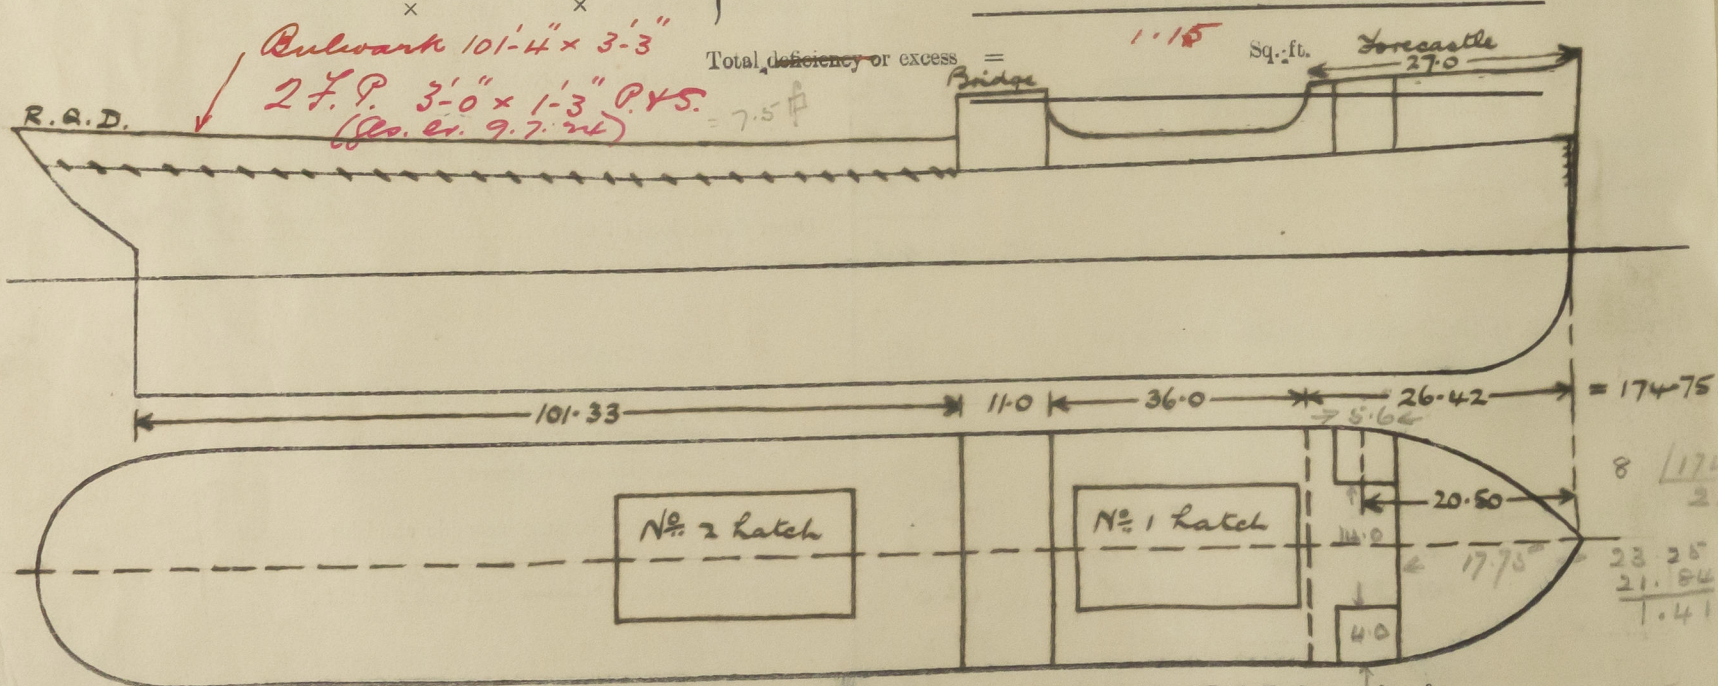 × ×
Bulwark 101'-4" × 3'-3"
2 F.P. 3'-0" × 1'-3" P.&S.
= 7.5
Total deficiency or excess = 1.15 Sq. ft.
R.Q.D.
Bridge
Forecastle
27.0
101.33 11.0 36.0 26.42 = 174.75
5.6
8
20.50
No. 2 hatch
No. 1 hatch
17.75
23.25
21.84
1.41
4.0